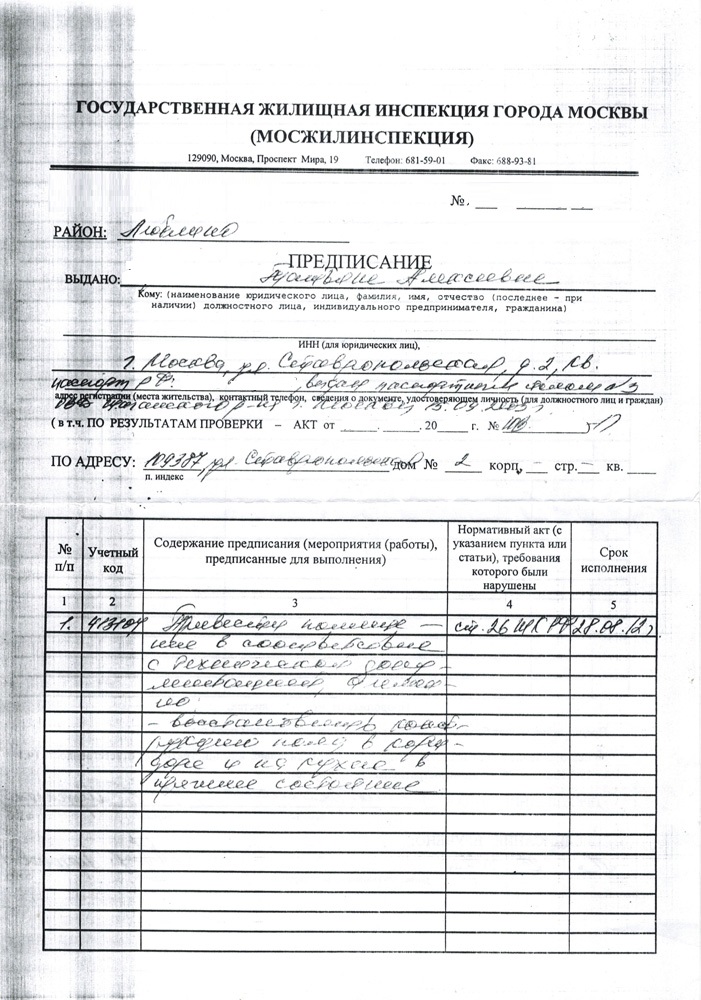 ГОСУДАРСТВЕННАЯ ЖИЛИЩНАЯ ИНСПЕКЦИЯ ГОРОДА МОСКВЫ
(МОСЖИЛИНСПЕКЦИЯ)
129090, Москва, Проспект Мира, 19 Телефон: 681-59-01 Факс: 688-93-81
№
РАЙОН: Люблино
ПРЕДПИСАНИЕ
ВЫДАНО: Татьяне Алексеевне
Кому: (наименование юридического лица, фамилия, имя, отчество (последнее – при
наличии) должностного лица, индивидуального предпринимателя, гражданина)
ИНН (для юридических лиц),
г. Москва, ул. Ставропольская, д. 2, кв.
паспорт РФ: , выдан паспортным столом №3
адрес регистрации (места жительства), контактный телефон, сведения о документе, удостоверяющем личность (для должностного лиц и граждан)
г. Москвы
( в т.ч. ПО РЕЗУЛЬТАТАМ ПРОВЕРКИ – АКТ от . . 20 г. №
ПО АДРЕСУ: 109387, ул. Ставропольская дом № 2 корп. – стр. – кв.
п. индекс
№ п/п Учетный код Содержание предписания (мероприятия (работы), предписанные для выполнения) Нормативный акт (с указанием пункта или статьи), требования которого были нарушены Срок исполнения
1 2 3 4 5
1. Привести помеще- ст. 26 ЖК РФ 28.08.12г
ние в соответствие
с технической доку-
ментацией, а имен-
но:
- восстановить конст-
рукцию пола в кори-
доре и на кухне в
прежнее состояние